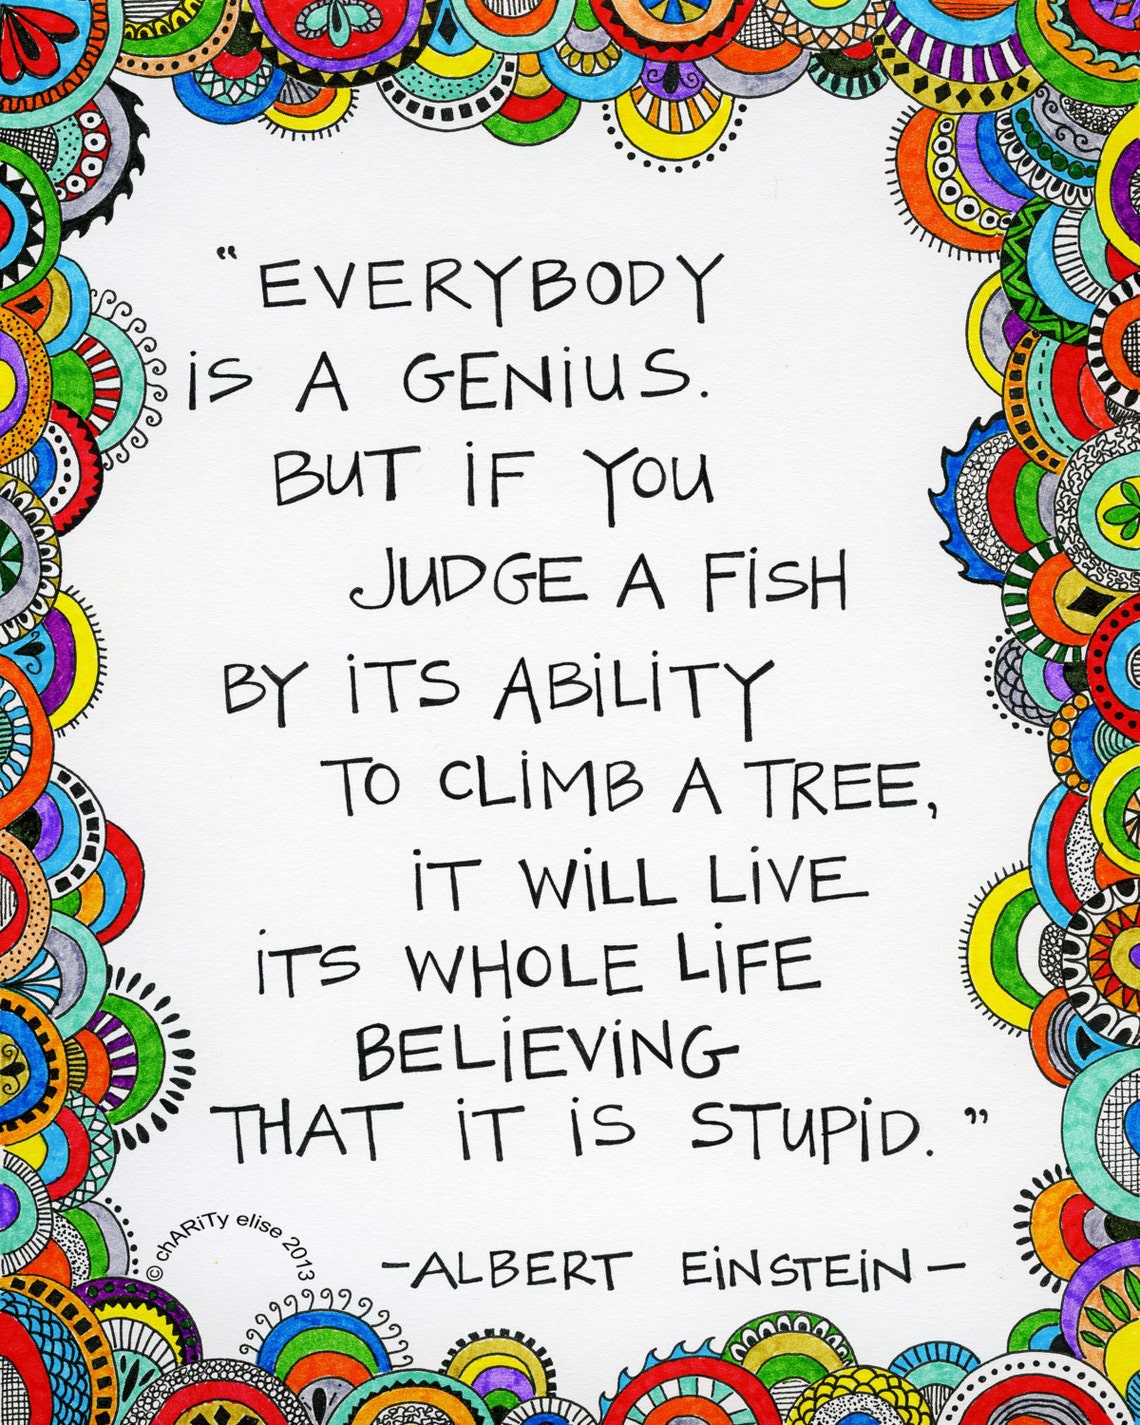 "EVERYBODY
iS A GENiUS.
BUT iF YOU
JUDGE A FiSH
BY iTS ABiLiTY
TO CLiMB A TREE,
iT WiLL LiVE
iTS WHOLE LiFE
BELiEViNG
THAT iT iS STUPiD."
© chARiTy elise 2013
-ALBERT EiNSTEiN-